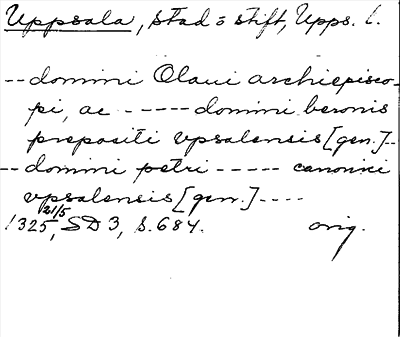 Uppsala, stad o stift, Upps. l.
-- domini Olaui archiepisco-
pi, ac ----- domini beronis
prepositi vpsalensis [gen.] --
-- domini petri ----- canonici
vpsalensis [gen.] ----
1325 21/5, SD 3, s. 684. orig.